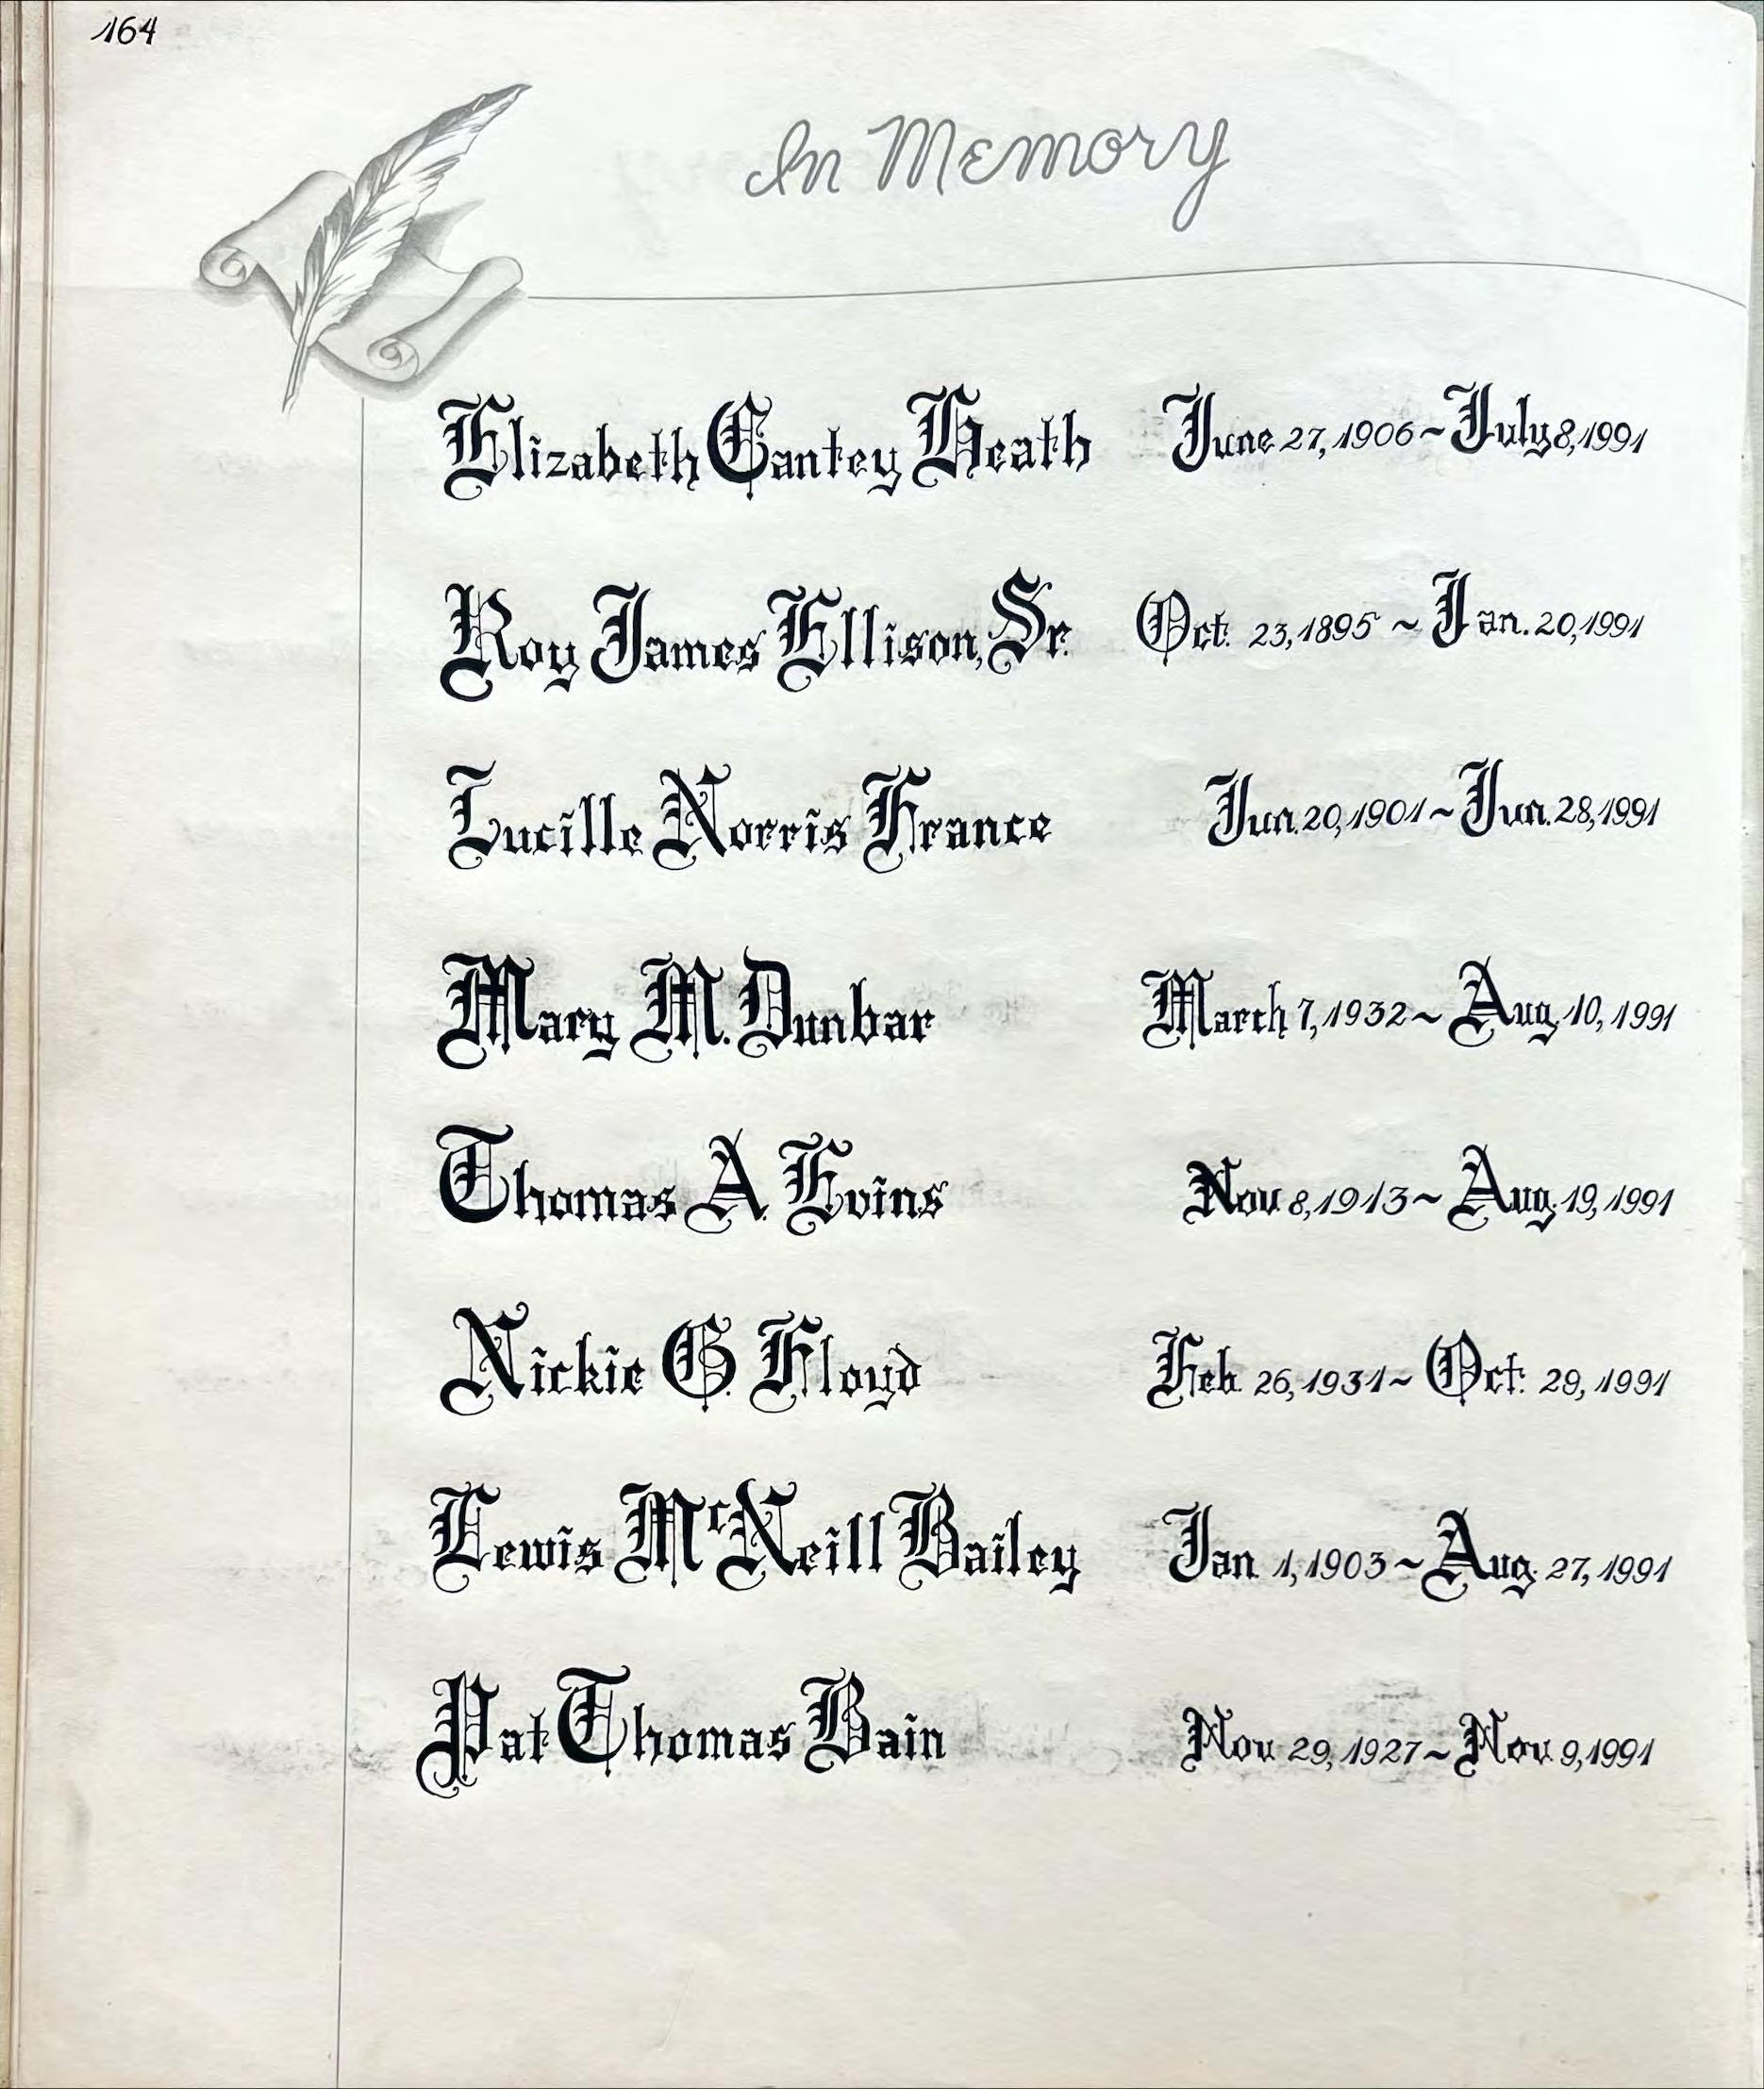 164
In Memory
Elizabeth Cantey Heath June 27, 1906 ~ July 8, 1991
Roy James Ellison, Sr. Oct. 23, 1895 ~ Jan. 20, 1991
Lucille Norris France Jun. 20, 1901 ~ Jun. 28, 1991
Mary M. Dunbar March 7, 1932 ~ Aug. 10, 1991
Thomas A. Evins Nov 8, 1913 ~ Aug. 19, 1991
Nickie G. Floyd Feb. 26, 1931 ~ Oct. 29, 1991
Lewis McNeill Bailey Jan. 1, 1903 ~ Aug. 27, 1991
Pat Thomas Bain Nov. 29, 1927 ~ Nov. 9, 1991